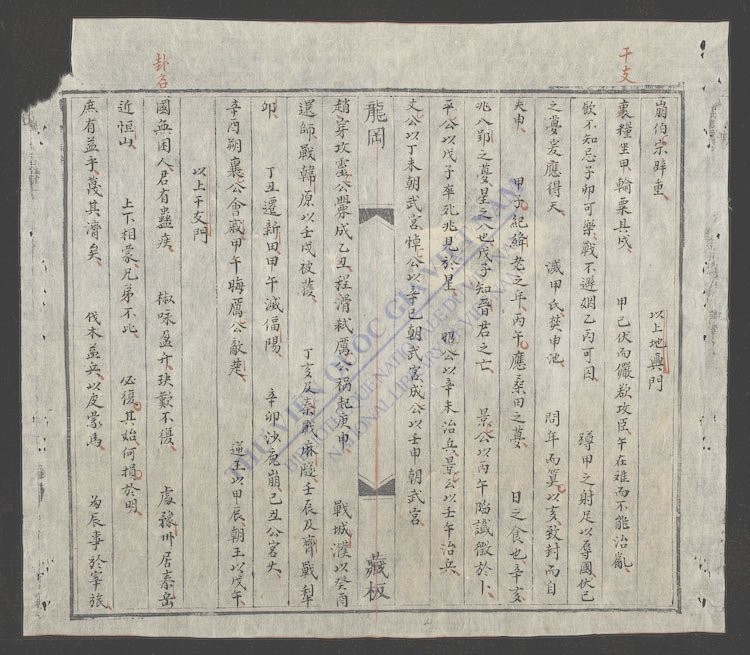 干支
崩伯宗辟重 以上地輿門
裹糧坐甲輸粟具成 甲已伏而儼欲攻臣午在难而不能治亂
飲不知忌子卯可樂戰不避姻乙丙可因 蹲甲之射足以辱國伏己
之夢爰應得天 滅甲氏葬申池 問年而算以亥致封而自
失申 甲子紀絳老之年丙午應桑田之夢 日之食也辛亥
兆入郢之夢星之入也戊子知晉君之亡 景公以丙午陷讖徵於卜
平公以戊子率死兆見於星 昭公以辛未治兵景公以壬午治兵
文公以丁未朝武宮悼公以辛巳朝武宮成公以壬申朝武宮
龍岡 藏板
趙穿攻霊公釁成乙丑程滑弑厲公祸起庚申 戰城濮以癸酉
還師戰韓原以壬戌被獲 丁亥及秦戰麻隧壬辰及齊戰犁
卯 丁丑遷新田甲午滅偪陽 辛卯沙鹿崩己丑公宮火
辛酉朔襄公會戚甲午晦厲公敵楚 逆王以甲辰朝王以戊午
以上干支門
卦名
國無困人君有蠱疾 椒咏盈升玦歎不復 處豫州居泰岳
近恒山 上下相蒙兄弟不比 必復其始何損於明
庶有益乎蔑其濟矣 伐木益兵以皮蒙馬 為辰事於宰旅
THƯ VIỆN QUỐC GIA VIỆT NAM
BIBLIOTHEQUE NATIONALE DU VIETNAM
NATIONAL LIBRARY OF VIETNAM